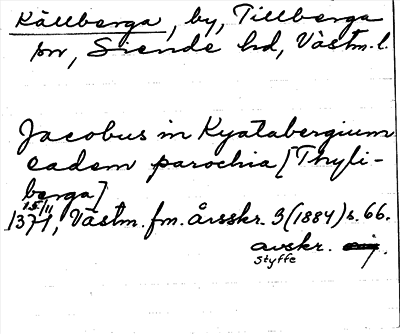 Källberga, by, Tillberga
sn, Siende hd, Västm. l.
Jacobus in Kyatabergium
eadem parochia [Thyli-
berga]
15/11
1371, Västm. fm. årsskr. 3 (1884) s. 66.
avskr.
Styffe